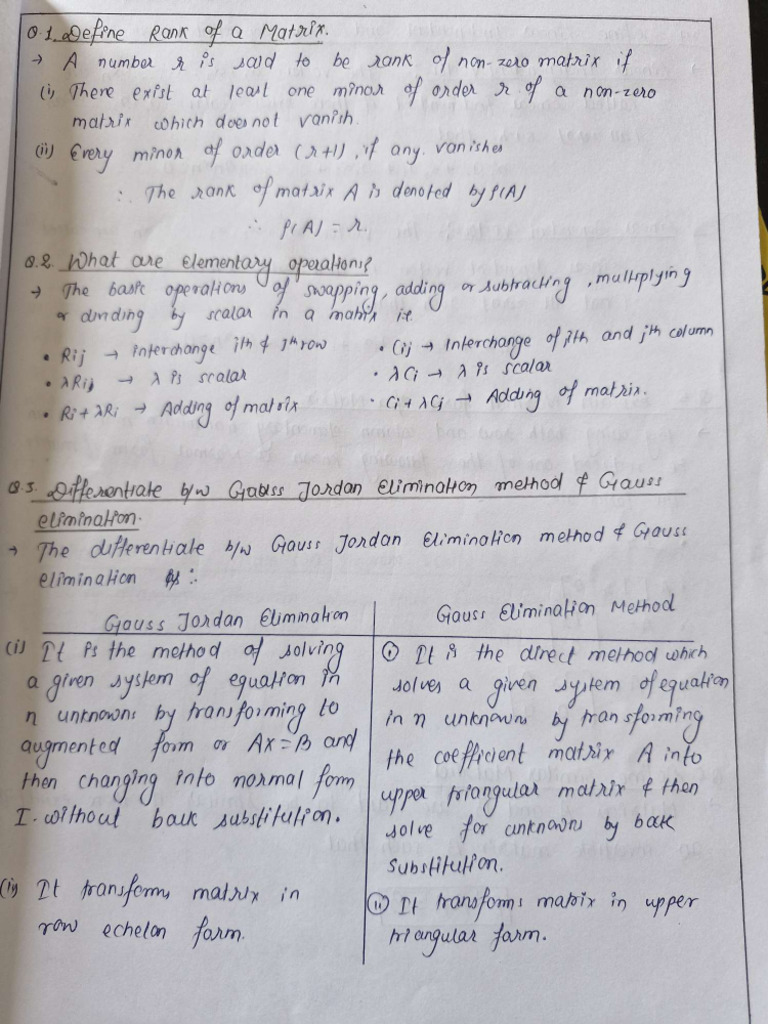 Q.1. Define Rank of a Matrix.
→ A number r is said to be rank of non-zero matrix if
(i) There exist at least one minor of order r of a non-zero
matrix which does not vanish.
(ii) Every minor of order (r+1), if any. vanishes
∴ The rank of matrix A is denoted by ρ(A)
∴ ρ(A) = r.
Q.2. What are Elementary operations?
→ The basic operations of swapping, adding or subtracting, multiplying
or dividing by scalar in a matrix i.e.
• Rij → interchange ith & jth row
• Cij → Interchange of ith and jth column
• λRi → λ is scalar
• λCi → λ is scalar
• Ri + λRj → Adding of matrix
• Ci + λCj → Adding of matrix.
Q.3. Differentiate b/w Gauss Jordan Elimination method & Gauss
elimination.
→ The differentiate b/w Gauss Jordan Elimination method & Gauss
elimination :
Gauss Jordan Elimination
(i) It is the method of solving
a given system of equation in
n unknowns by transforming to
augmented form or AX=B and
then changing into normal form
I. without back substitution.
(ii) It transforms matrix in
row echelon form.
Gauss Elimination Method
(i) It is the direct method which
solves a given system of equation
in n unknowns by transforming
the coefficient matrix A into
upper triangular matrix & then
solve for unknowns by back
substitution.
(ii) It transforms matrix in upper
triangular form.